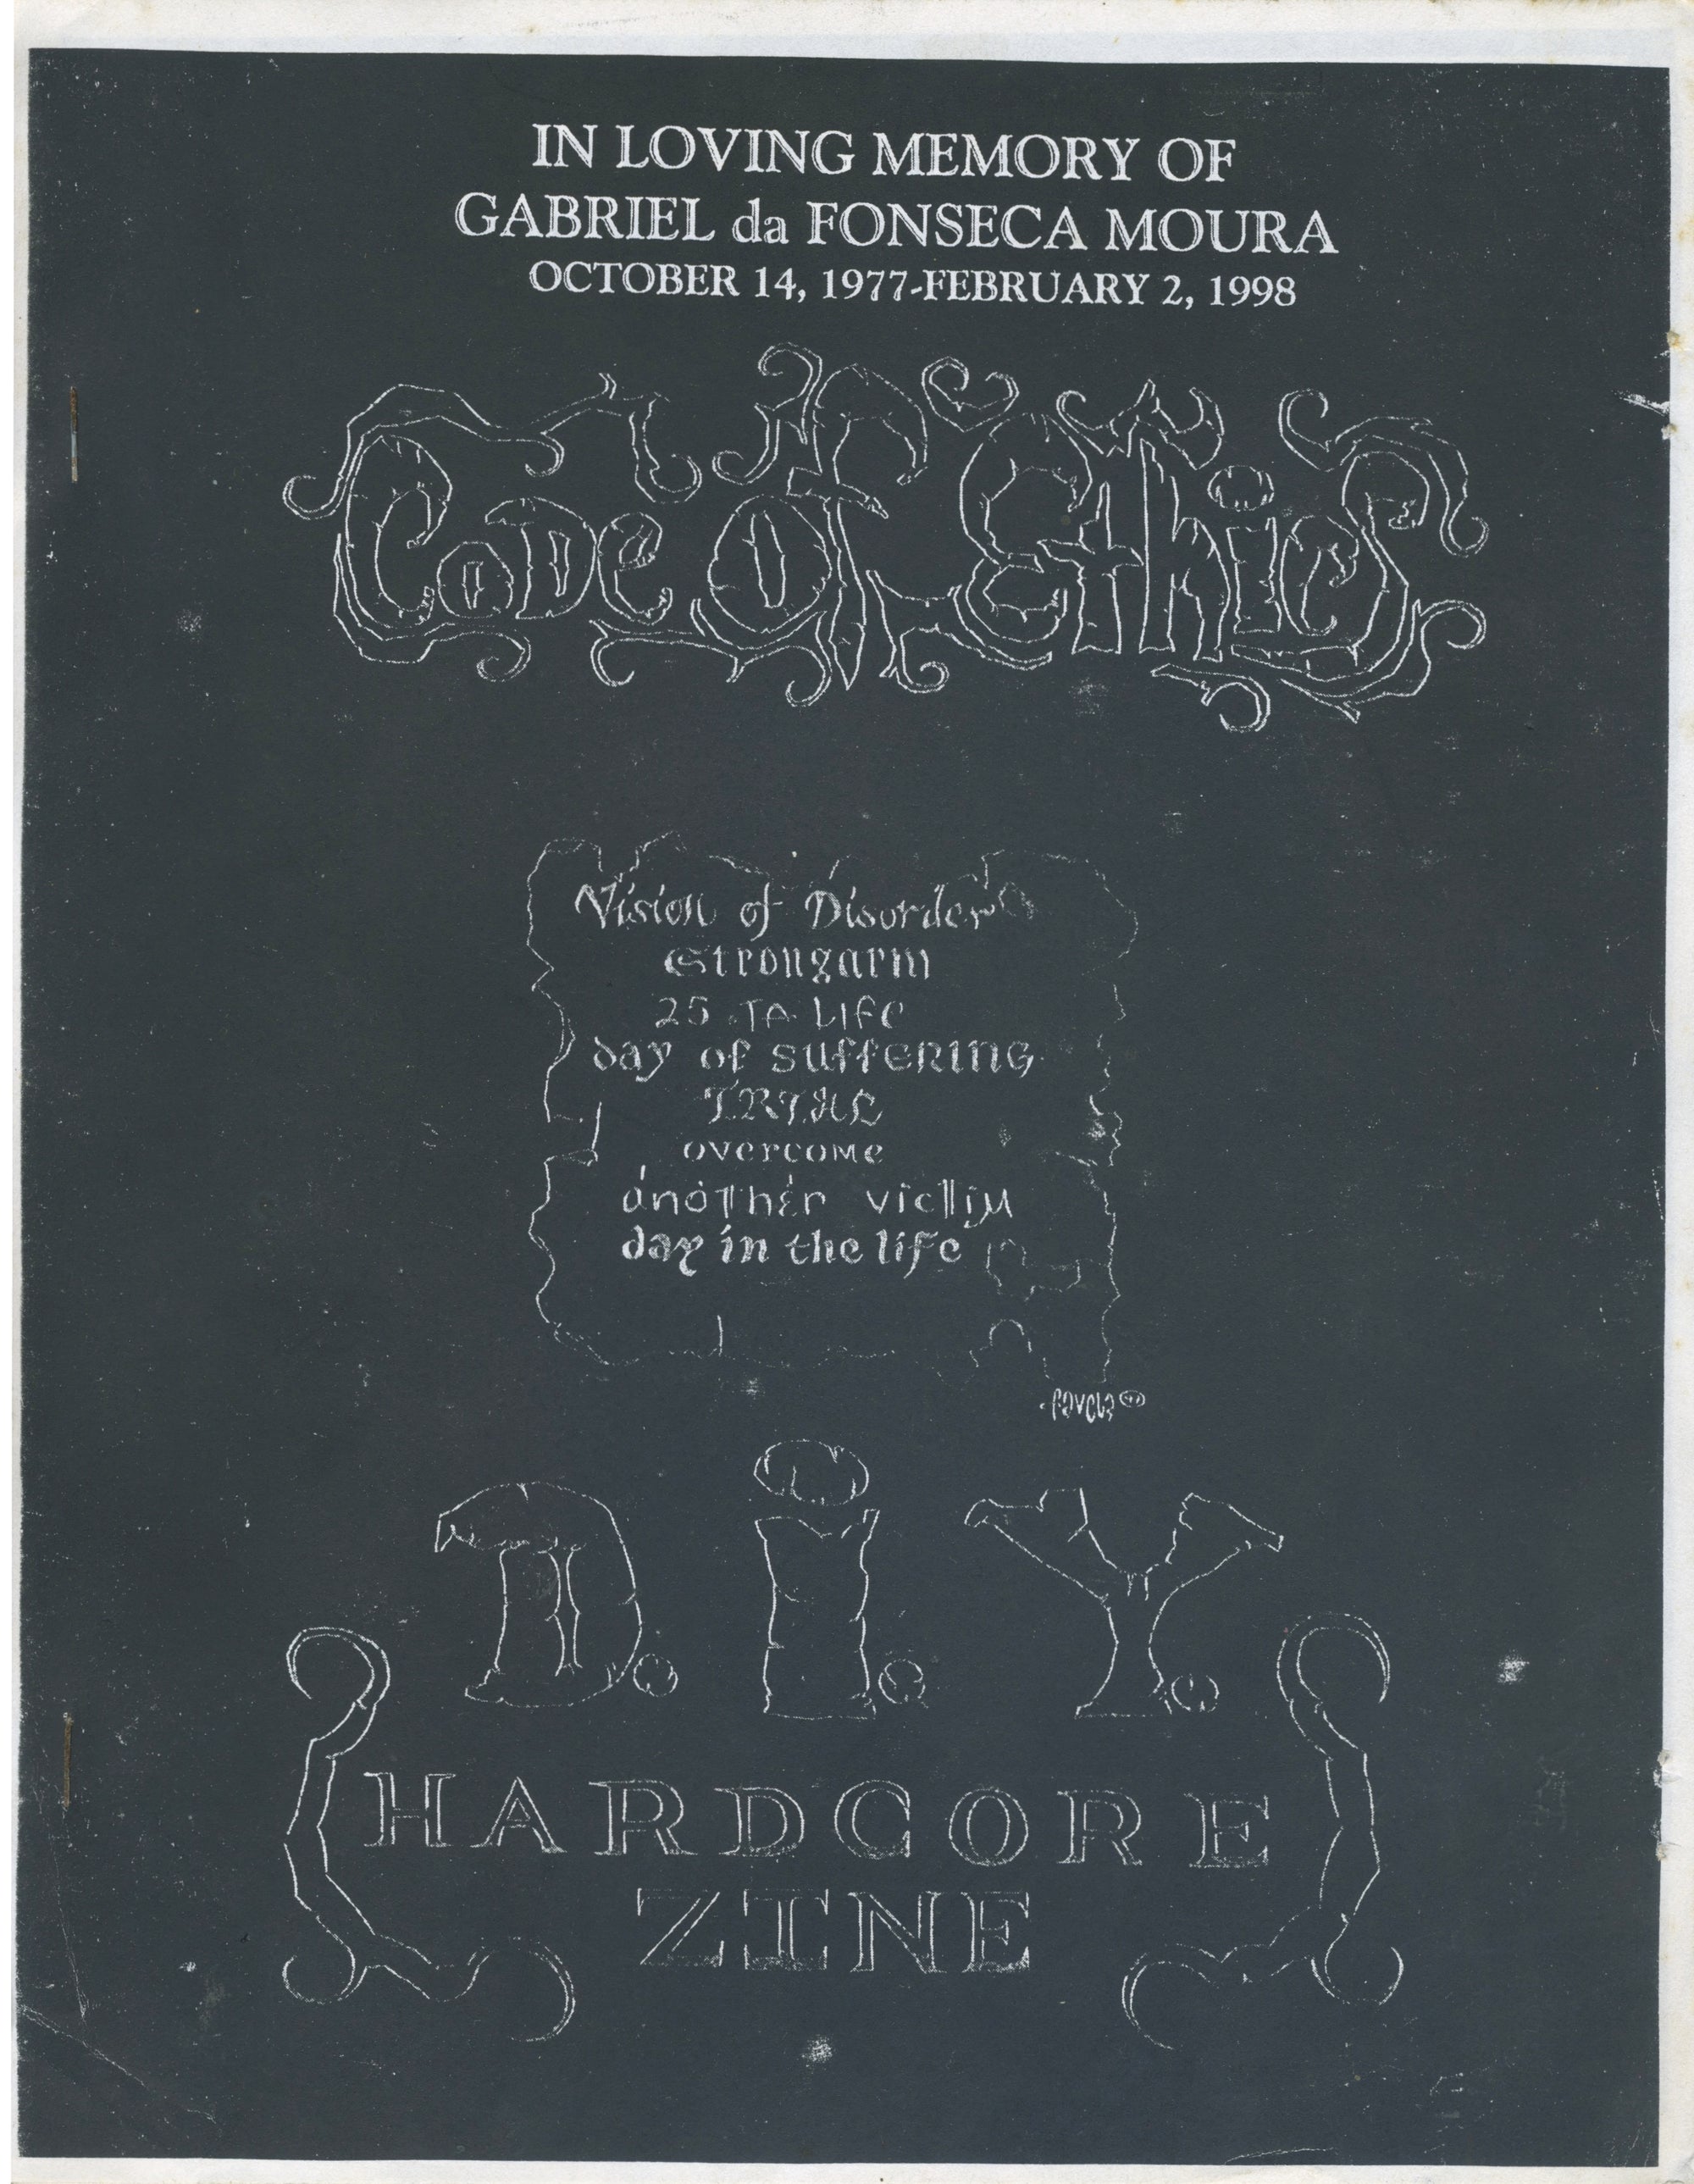 IN LOVING MEMORY OF
GABRIEL da FONSECA MOURA
OCTOBER 14, 1977-FEBRUARY 2, 1998
Code Of Ethics
Vision of Disorder
Strongarm
25 TA LIFE
day of suffering
overcome
another victim
day in the life
D.i.Y.
HARDCORE
ZINE